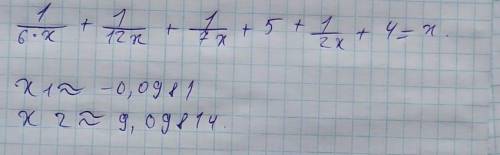 1/(6·x) + 1/(12x) + 1/(7x) + 5 + 1/(2x) + 4 = x.
x1 ≈ -0,0981
x2 ≈ 9,09814.